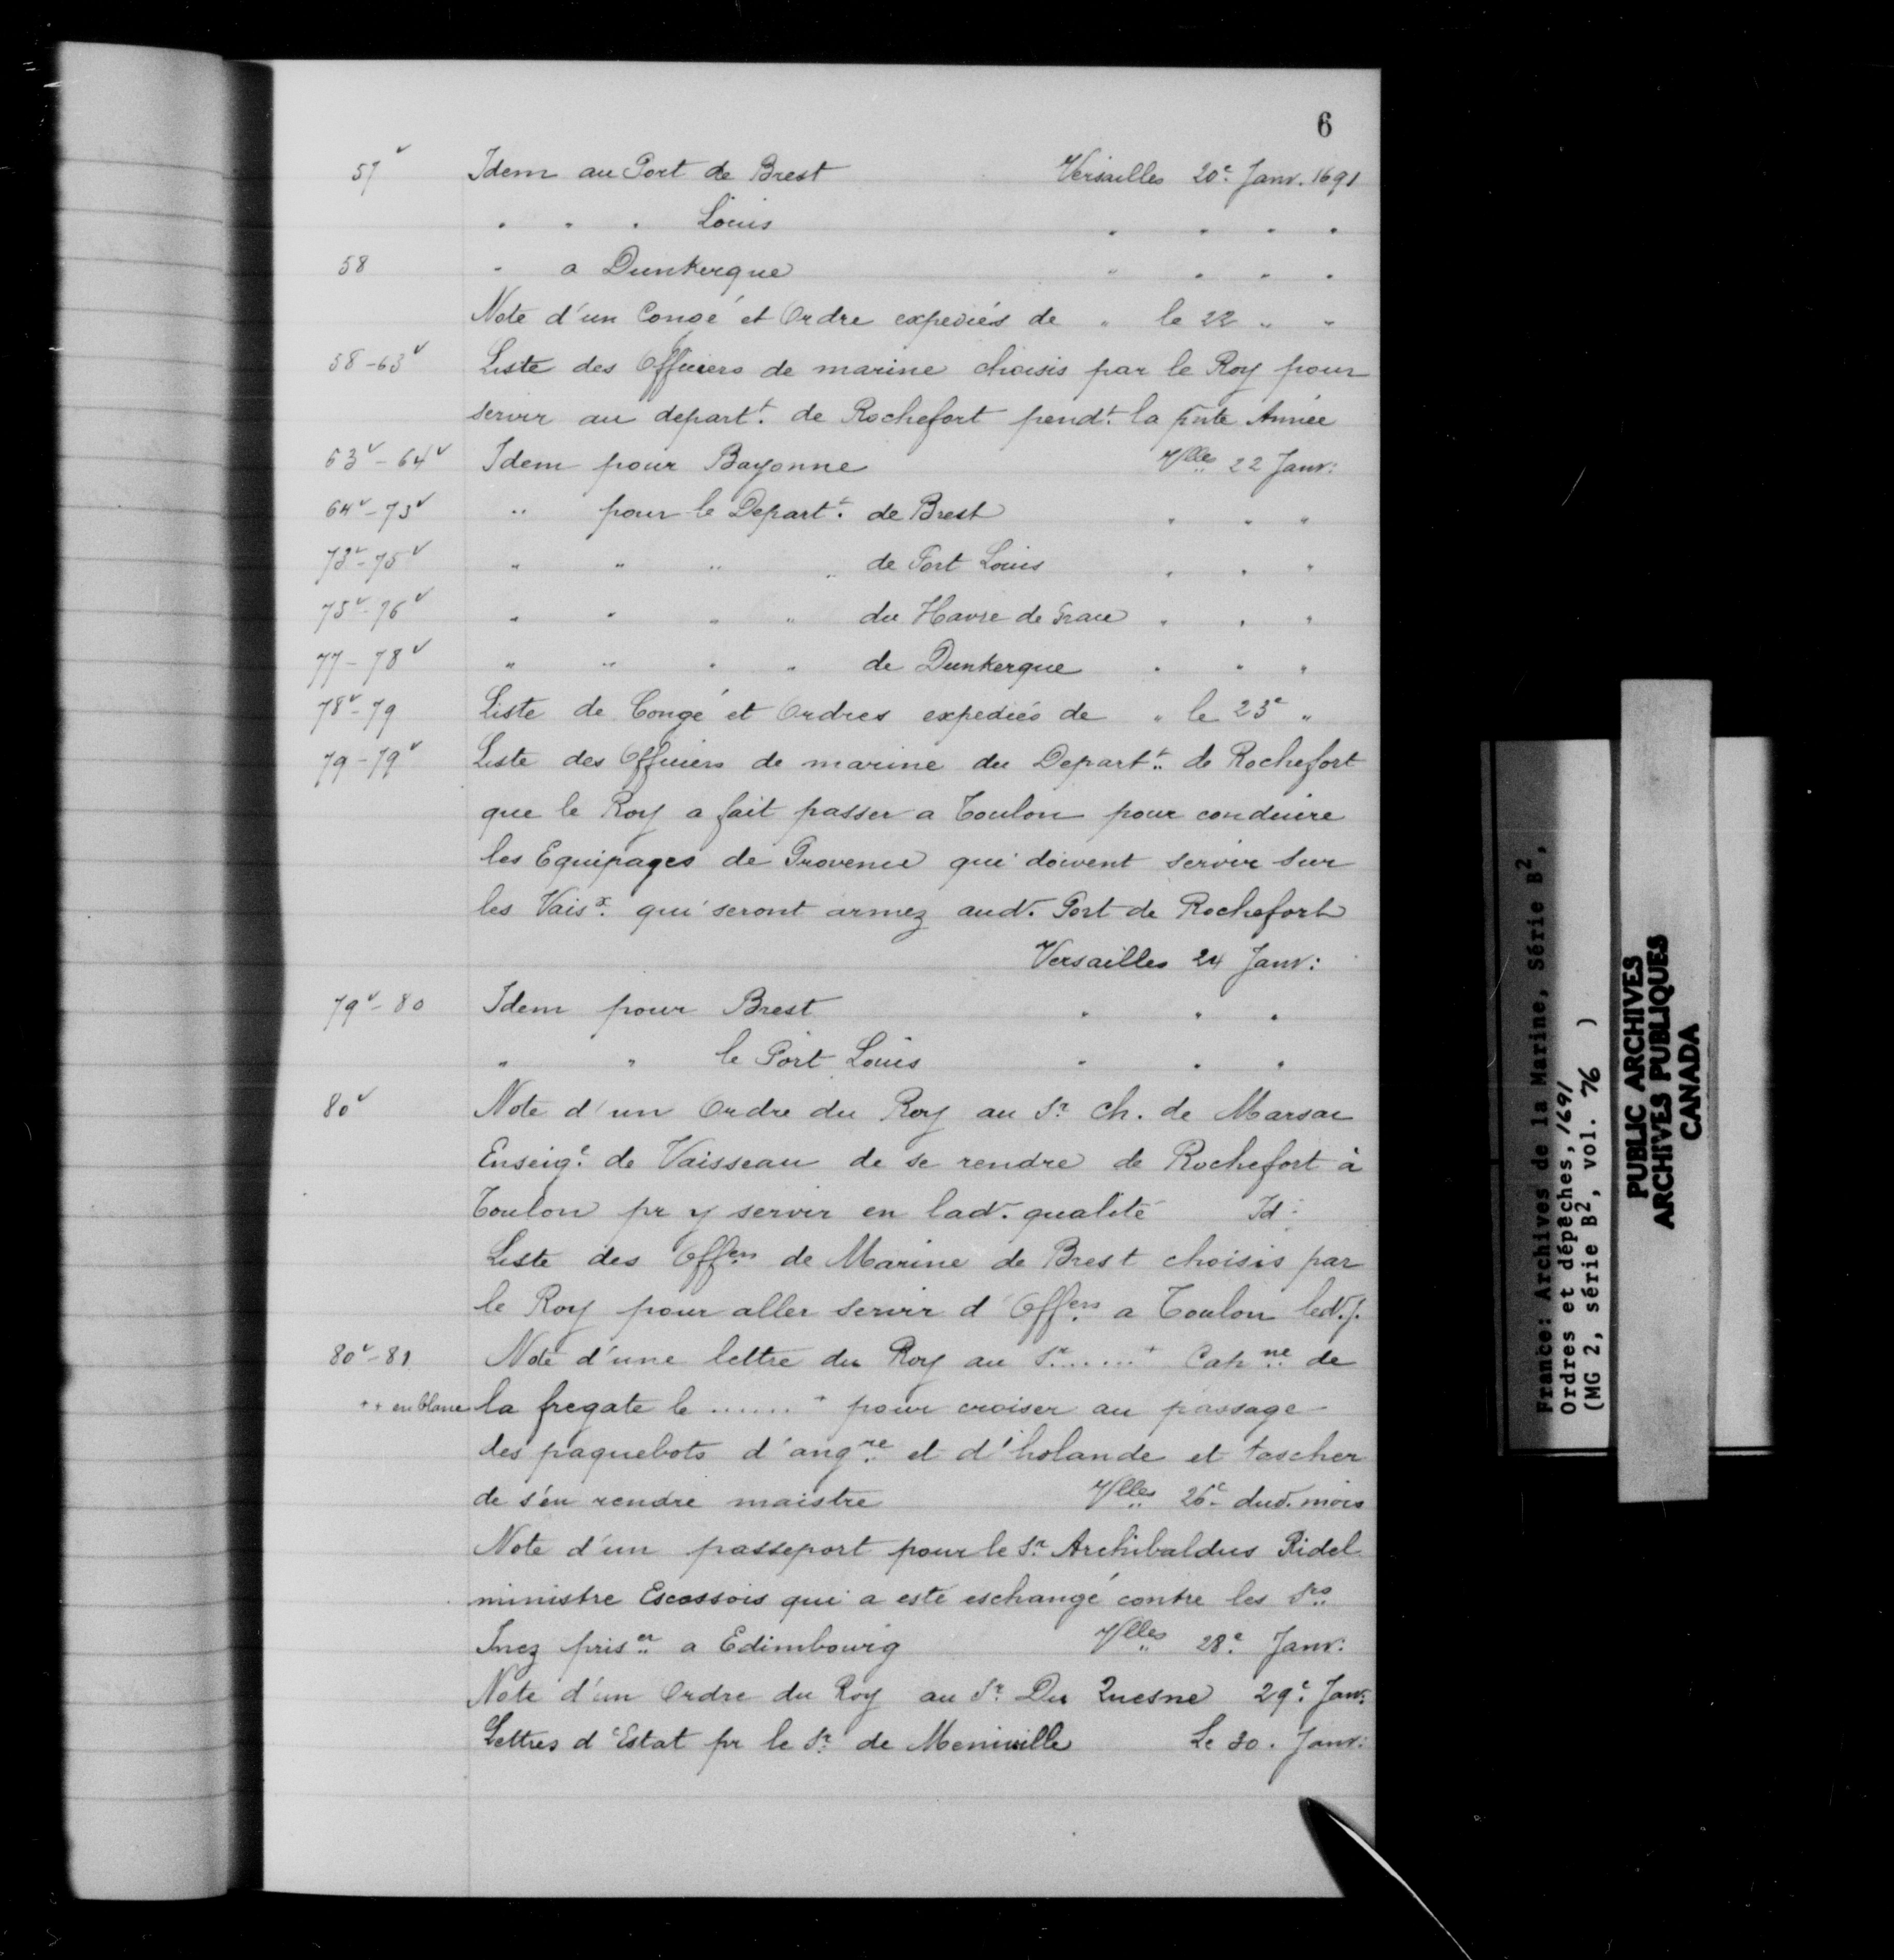 6
57v Idem au Port de Brest Versailles 20e Janv. 1691
" " " Louis " " " "
58 " a Dunkerque " " " "
Note d'un Congé et Ordre expediés de " le 22 " "
58-63v Liste des Officiers de marine choisis par le Roy pour
servir au departt. de Rochefort pendt. la pnte Année
63v-64v Idem pour Bayonne Vlles 22 Janv:
64v-73v " pour le Departt. de Brest " " "
73v-75v " " " " de Port Louis " " "
75v-76v " " " " du Havre de Grace " " "
77-78v " " " " de Dunkerque " " "
78v-79 Liste de Congé et Ordres expediés de " le 23e "
79-79v Liste des Officiers de marine du Departt. de Rochefort
que le Roy a fait passer a Toulon pour conduire
les Equipages de Provence qui doivent servir sur
les Vaisx. qui seront armez aud. Port de Rochefort
Versailles 24 Janv:
79v-80 Idem pour Brest " " "
" " le Port Louis " " "
80v Note d'un Ordre du Roy au Sr. Ch. de Marsac
Enseige. de Vaisseau de se rendre de Rochefort à
Toulon pr y servir en lad. qualité Id:
Liste des Offers de Marine de Brest choisis par
le Roy pour aller servir d'Offers a Toulon led. j.
80v-81 Note d'une lettre du Roy au Sr. ...... + Capne de
++ en blanc la fregate le ...... + pour croiser au passage
des paquebots d'angre et d'holande et tascher
de s'en rendre maistre Vlles 26e dud. mois
Note d'un passeport pour le Sr. Archibaldus Ridel
ministre Escossois qui a esté eschangé contre les Srs
Inez priser a Edimbourg Vlles 28e Janv:
Note d'un Ordre du Roy au Sr. Du Quesne 29e Janv:
Lettres d'Estat pr le Sr. de Meniville Le 30. Janv:
France: Archives de la Marine, Série B2,
Ordres et dépêches, 1691
(MG 2, série B2, vol. 76 )
PUBLIC ARCHIVES
ARCHIVES PUBLIQUES
CANADA